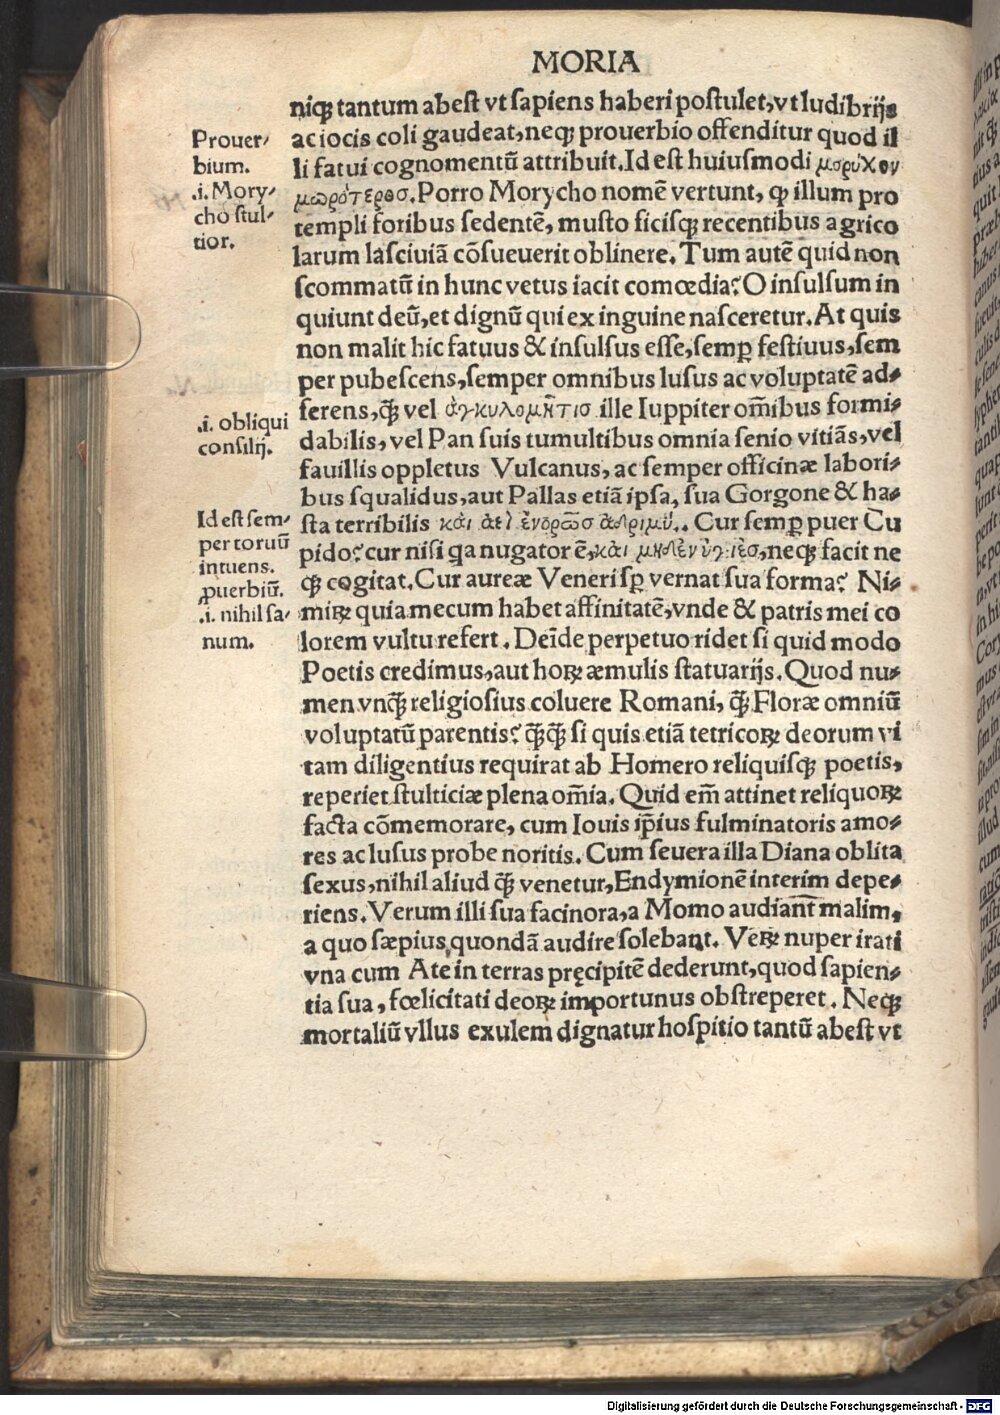 MORIA
niqꝫ tantum abeſt vt ſapiens haberi poſtulet, vt ludibrijs
ac iocis coli gaudeat, neqꝫ prouerbio offenditur quod il
li fatui cognomentū attribuit. Id eſt huiuſmodi μορύχου
μωρότεροσ. Porro Morycho nomē vertunt, ꝙ illum pro
templi foribus ſedentē, muſto ficiſqꝫ recentibus agrico
larum laſciuiā cōſueuerit oblinere. Tum autē quid non
ſcommatū in hunc vetus iacit comœdia? O inſulſum in
quiunt deū, et dignū qui ex inguine naſceretur. At quis
non malit hic fatuus & inſulſus eſſe, ſemꝑ feſtiuus, ſem
per pubeſcens, ſemper omnibus luſus ac voluptatē ad⸗
ferens, ꝗ̄ꝫ vel ἀγκυλομήτισ ille Iuppiter om̄ibus formi⸗
dabilis, vel Pan ſuis tumultibus omnia ſenio vitiās, vel
fauillis oppletus Vulcanus, ac ſemper officinæ labori⸗
bus ſqualidus, aut Pallas etiā ipſa, ſua Gorgone & ha⸗
ſta terribilis καὶ ἀεὶ ἐνορῶσ α δριμύ. Cur ſemꝑ puer Cu
pido? cur niſi ꝗa nugator ē, καὶ μηδὲν ὑγιὲσ, neqꝫ facit ne
qꝫ cogitat. Cur aureæ Veneri ſꝑ vernat ſua forma? Ni⸗
miꝝ quia mecum habet affinitatē, vnde & patris mei co
lorem vultu refert. Deīde perpetuo ridet ſi quid modo
Poetis credimus, aut hoꝝ æmulis ſtatuarijs. Quod nu⸗
men vnꝗ̄ꝫ religioſius coluere Romani, ꝗ̄ꝫ Floræ omniū
voluptatū parentis? ꝗ̄ꝫꝗ̄ꝫ ſi quis etiā tetricoꝝ deorum vi
tam diligentius requirat ab Homero reliquiſqꝫ poetis,
reperiet ſtulticiæ plena om̄ia. Quid em̄ attinet reliquoꝝ
facta cōmemorare, cum Iouis ip̄ius fulminatoris amo⸗
res ac luſus probe noritis. Cum ſeuera illa Diana oblita
ſexus, nihil aliud ꝗ̄ꝫ venetur, Endymionē interim depe⸗
riens. Verum illi ſua facinora, a Momo audiant̄ malim,
a quo ſæpius quondā audire ſolebant. Veꝝ nuper irati
vna cum Ate in terras pręcipitē dederunt, quod ſapien⸗
tia ſua, fœlicitati deoꝝ importunus obſtreperet. Neqꝫ
mortaliū vllus exulem dignatur hoſpitio tantū abeſt vt
Prouer⸗
bium.
.i. Mory⸗
cho ſtul⸗
tior.
.i. obliqui
conſilij.
Id eſt ſem⸗
per toruū
intuens.
ꝓuerbiū.
.i. nihil ſa⸗
num.
Digitalisierung gefördert durch die Deutsche Forschungsgemeinschaft - DFG